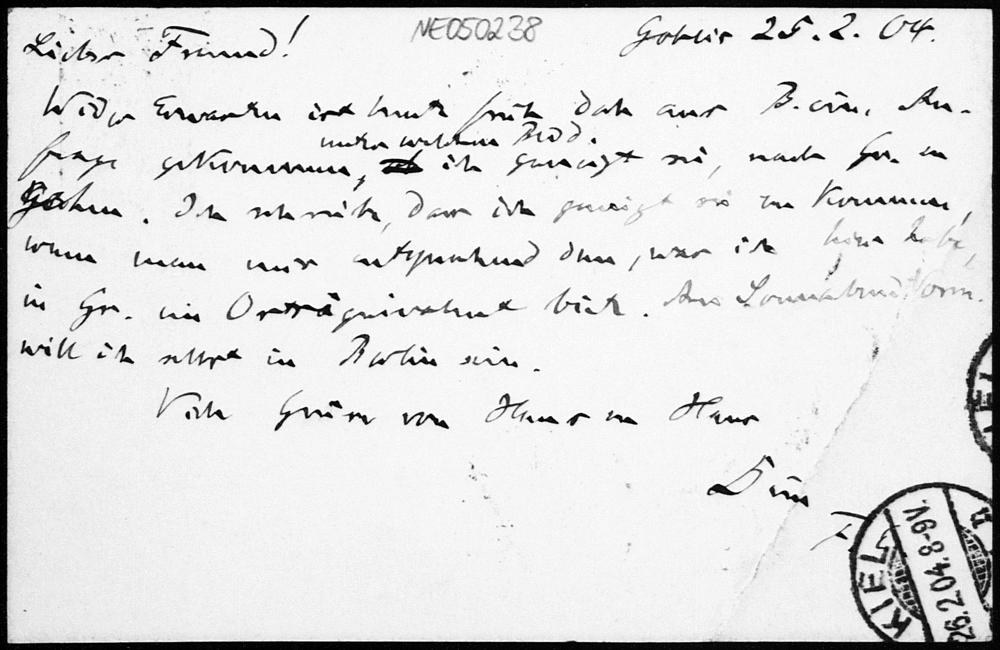 NE050238
Gohlis 25.2.04.
Lieber Freund!
Wider Erwarten ist heute früh doch aus B. eine An-
frage gekommen, unter welchen Bedd. ich geneigt sei, nach Gr. zu
gehen. Ich schreibe, dass ich geneigt sei zu kommen,
wenn man mir entsprechend dem, was ich hier habe,
in Gr. ein Ortsäquivalent biete. Am Sonnabend Vorm.
will ich selbst in Berlin sein.
Viele Grüsse von Haus zu Haus
Dein
KIEL
26.2.04.8-9V.